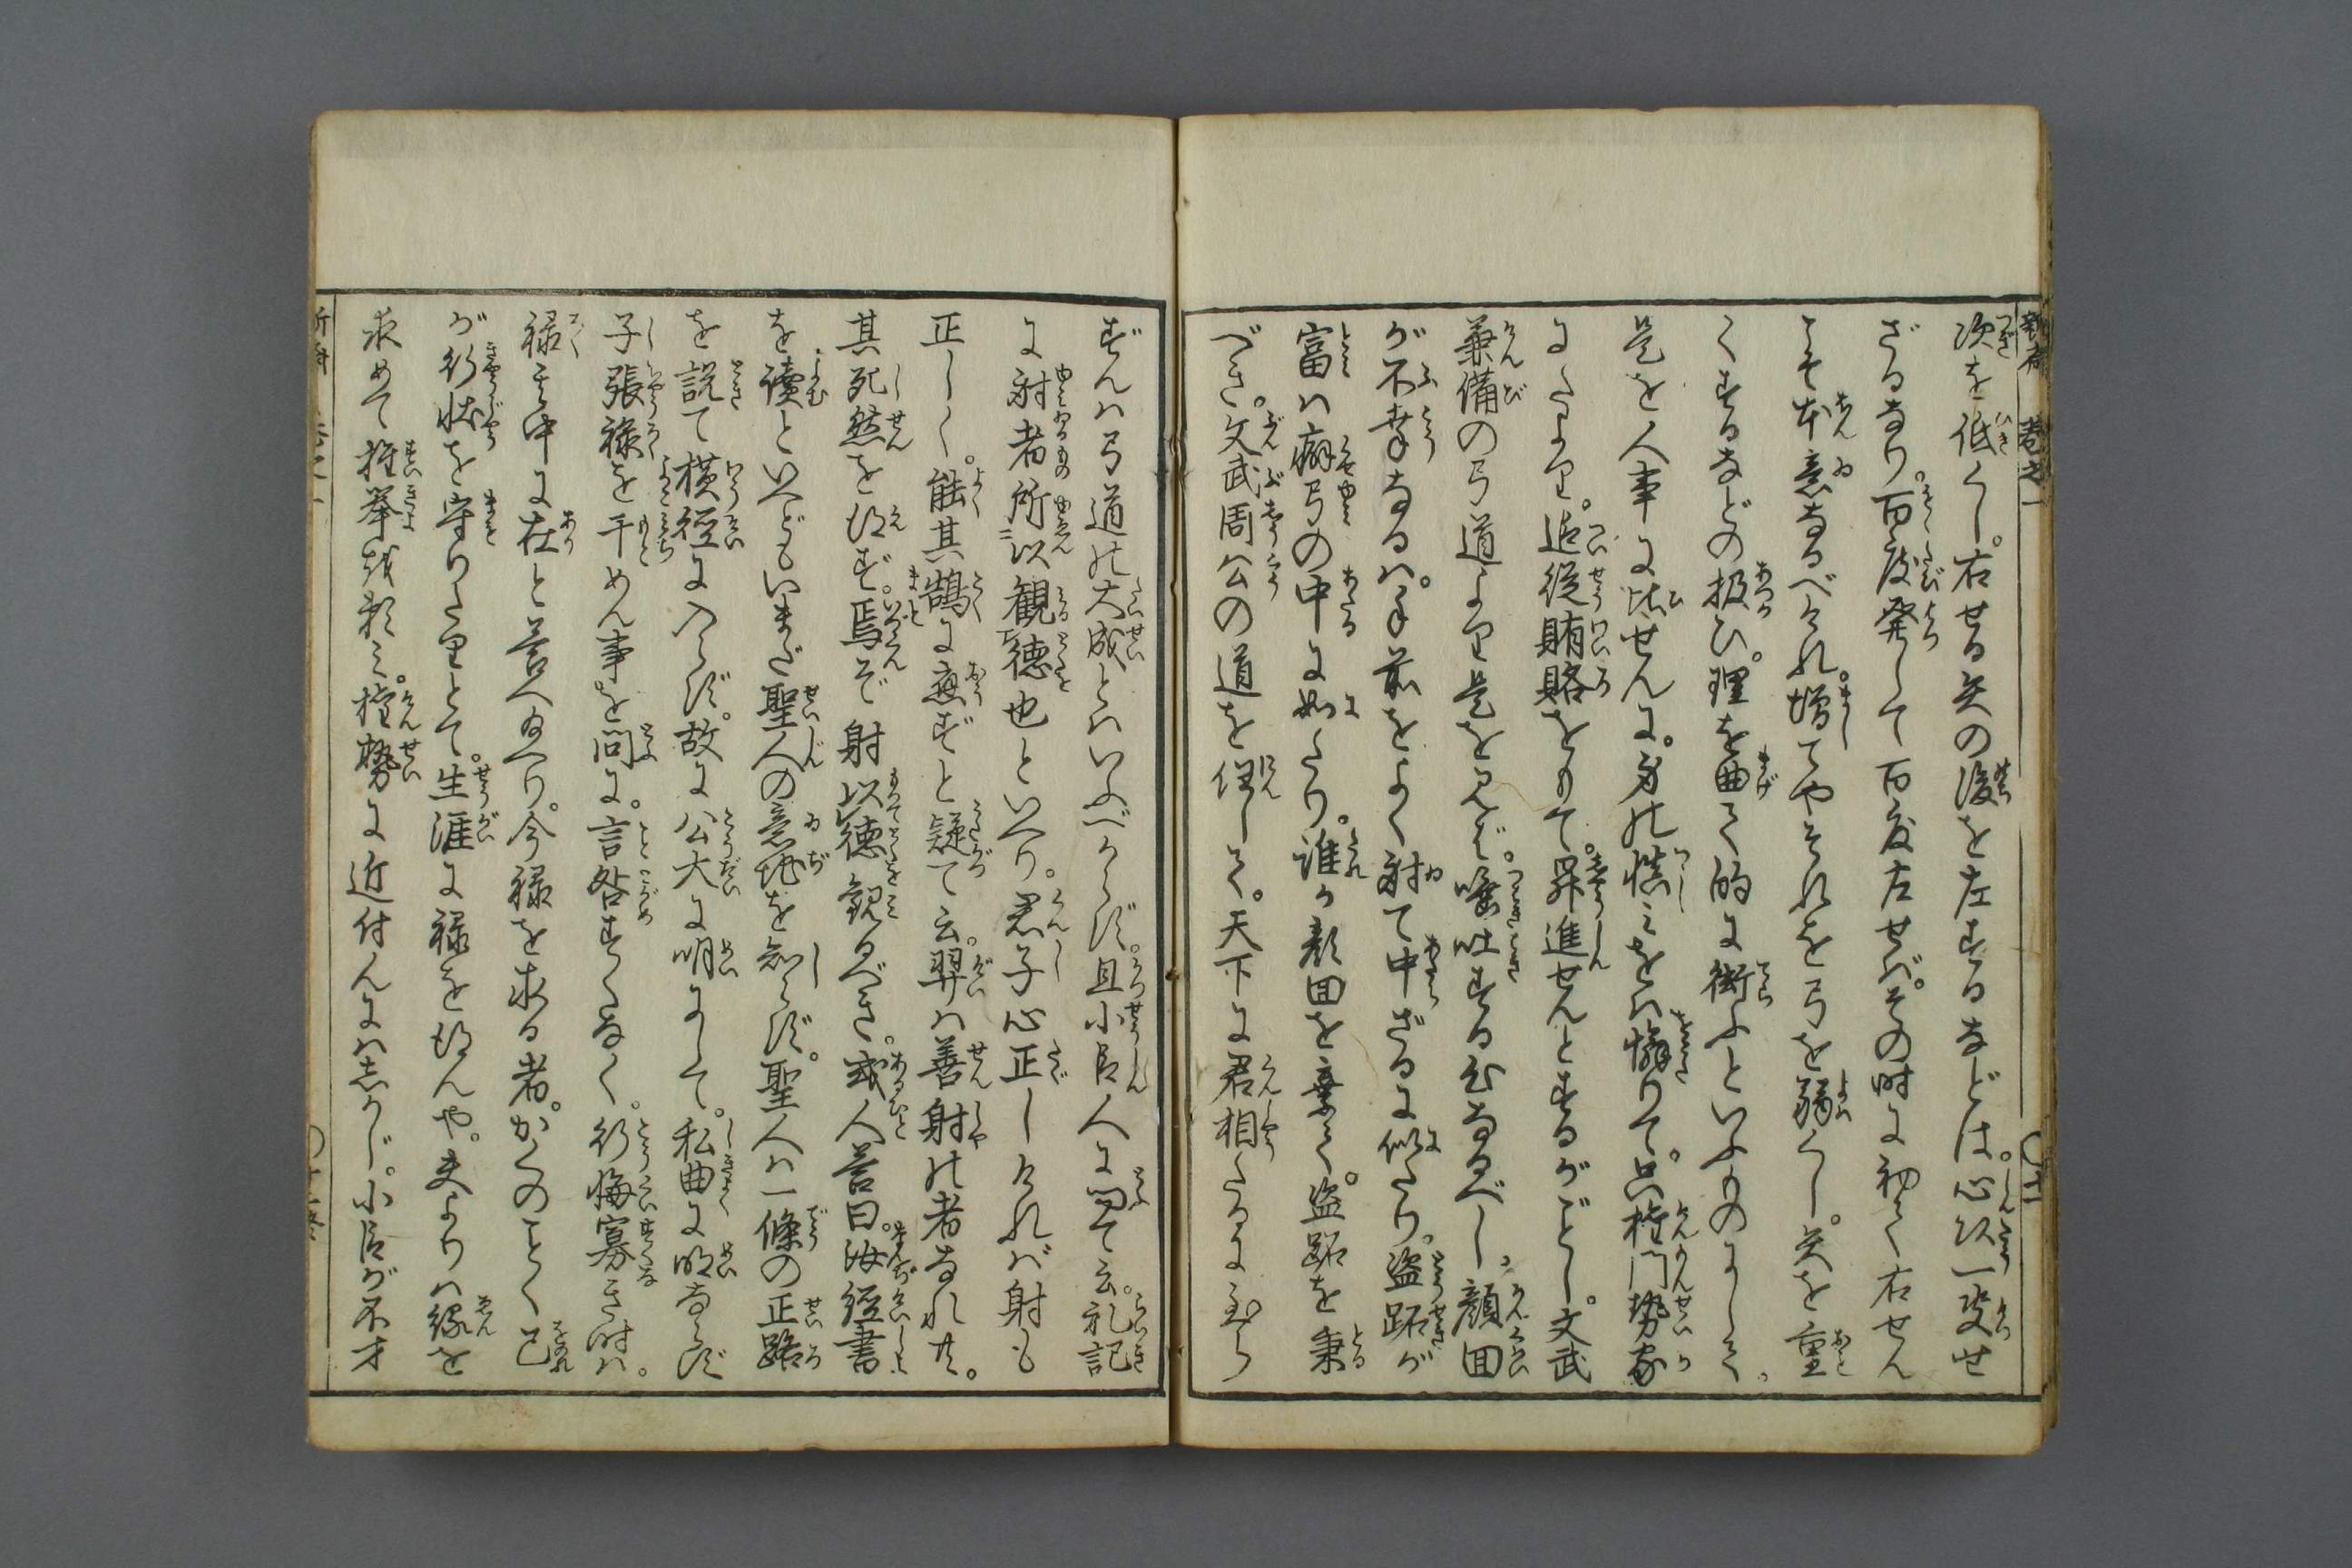 次を低くし。右せる矢の後を左するなどは。心頃一決せ
ざるなり。百度発して百度左せば。その時に初て右せん
こそ本意なるべけれ。増てやそれを弓を弱くし。矢を重
くするなどの扱ひ。理を曲て的に衒ふといふものにして。
是を人事に比せんに。身の慎みをば怠りて。只権門勢家
にたより。追従賄賂をもて。昇進せんとするがごとし。文武
兼備の弓道より是を見ば。唾吐する心なるべし。顔回
が不幸なるは。手前をよく射て中ざるに似たり。盗跖が
富は癖弓の中に如たり。誰か顔回を棄て。盗跖を秉
べき。文武周公の道を任して。天下に君相たるに至ら
ずんは弓道の大成とはいふべからず。且小臣人に問て云。礼記
に射者所以観徳也といへり。君子心正しければ射も
正しく。能其鵠に応ずと疑て云。羿は善射の者なれ共。
其死然を得ず。焉ぞ射以徳観べき。或人答曰。汝経書
を読といへどもいまだ聖人の意地を知らず。聖人は一條の正路
を説て横徑に入らず。故に公大に明にして。私曲に明ならず
子張禄を干めん事を問に。言咎すくなく。行悔寡き時は。
禄其中に在と答へ給へり。今禄を求る者。かくのごとく己
が行状を守りたりとて。生涯に禄を得んや。夫よりは縁を
求めて推挙を頼み。権勢に近付んにはしかじ。小臣が不才